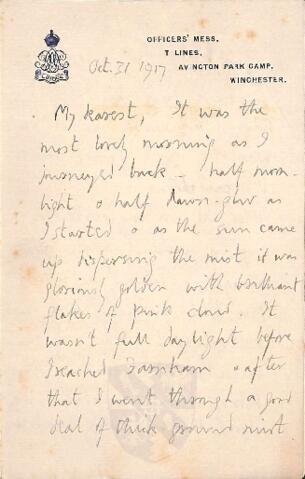 OFFICERS' MESS,
T LINES,
AVINGTON PARK CAMP,
WINCHESTER.
Oct. 31 1917
My dearest, It was the
most lovely morning as I
journeyed back – half moon-
light & half dawn-glow as
I started & as the sun came
up dispersing the mist it was
gloriously golden with brilliant
flakes of pink cloud. It
wasn't full daylight before
I reached Farnham & after
that I went through a good
deal of thick ground mist